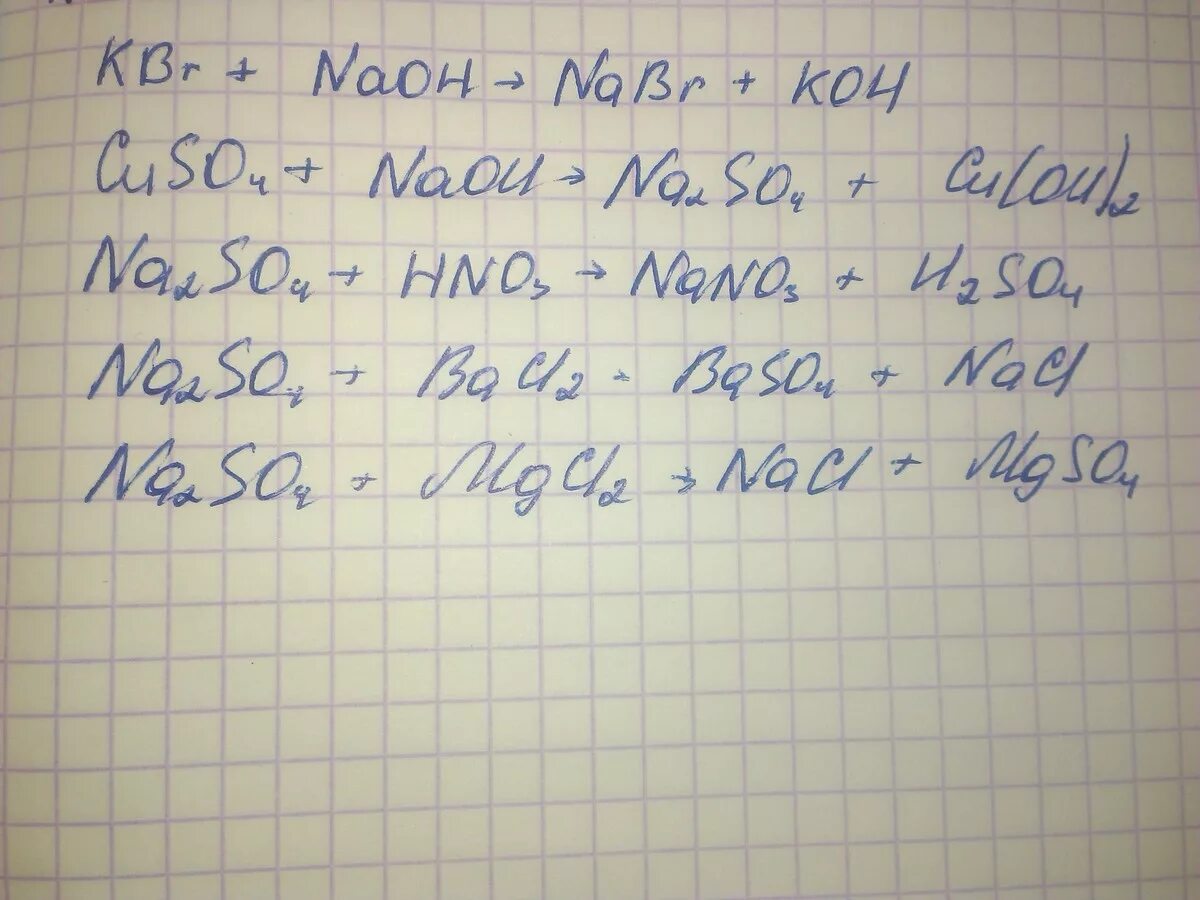 KBr + NaOH → NaBr + KOH
CuSO₄ + NaOH → Na₂SO₄ + Cu(OH)₂
Na₂SO₄ + HNO₃ → NaNO₃ + H₂SO₄
Na₂SO₄ + BaCl₂ - BaSO₄ + NaCl
Na₂SO₄ + MgCl₂ → NaCl + MgSO₄